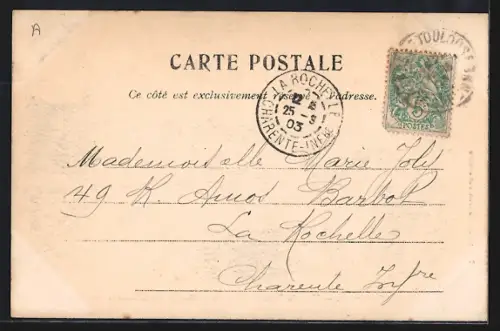 A
TOULOUSE
CARTE POSTALE
Ce côté est exclusivement réservé à l'adresse.
LA ROCHELLE
12
25 -3
03
CHARENTE-INFRE
5
POSTES
Mademoiselle Marie Joly
49 R. Amos Barbot
La Rochelle
Charente Infre